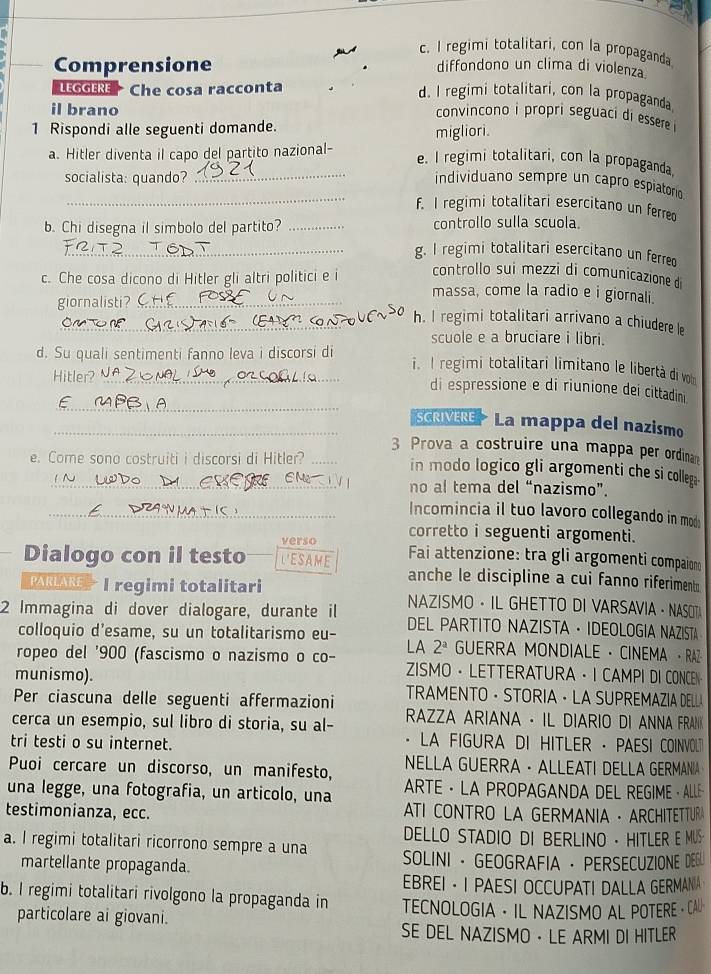 Comprensione
LEGGERE Che cosa racconta
il brano
1 Rispondi alle seguenti domande.
a. Hitler diventa il capo del partito nazional-
socialista: quando? 1921
b. Chi disegna il simbolo del partito?
FRITZ TODT
c. Che cosa dicono di Hitler gli altri politici e i
giornalisti? CHE FOSSE UN
ORATORE CARISTATICO LEADER CONTROVERSO
d. Su quali sentimenti fanno leva i discorsi di
Hitler? NAZIONALISMO, ORGOGLIO
E RABBIA
e. Come sono costruiti i discorsi di Hitler?
IN MODO DI ESSERE EMOTIVI
E DRAMMATICI
Dialogo con il testo
verso
L'ESAME
PARLARE I regimi totalitari
2 Immagina di dover dialogare, durante il
colloquio d'esame, su un totalitarismo eu-
ropeo del '900 (fascismo o nazismo o co-
munismo).
Per ciascuna delle seguenti affermazioni
cerca un esempio, sul libro di storia, su al-
tri testi o su internet.
Puoi cercare un discorso, un manifesto,
una legge, una fotografia, un articolo, una
testimonianza, ecc.
a. I regimi totalitari ricorrono sempre a una
martellante propaganda.
b. I regimi totalitari rivolgono la propaganda in
particolare ai giovani.
c. I regimi totalitari, con la propaganda,
diffondono un clima di violenza.
d. I regimi totalitari, con la propaganda,
convincono i propri seguaci di essere i
migliori.
e. I regimi totalitari, con la propaganda,
individuano sempre un capro espiatorio.
f. I regimi totalitari esercitano un ferreo
controllo sulla scuola.
g. I regimi totalitari esercitano un ferreo
controllo sui mezzi di comunicazione di
massa, come la radio e i giornali.
h. I regimi totalitari arrivano a chiudere le
scuole e a bruciare i libri.
i. I regimi totalitari limitano le libertà di
di espressione e di riunione dei cittadini.
SCRIVERE La mappa del nazismo
3 Prova a costruire una mappa per ordinare
in modo logico gli argomenti che si collega-
no al tema del "nazismo".
Incomincia il tuo lavoro collegando in modo
corretto i seguenti argomenti.
Fai attenzione: tra gli argomenti compaiono
anche le discipline a cui fanno riferimento.
NAZISMO • IL GHETTO DI VARSAVIA • NASCITA
DEL PARTITO NAZISTA • IDEOLOGIA NAZISTA •
LA 2ª GUERRA MONDIALE • CINEMA • RAZ-
ZISMO • LETTERATURA • I CAMPI DI CONCEN-
TRAMENTO • STORIA • LA SUPREMAZIA DELLA
RAZZA ARIANA • IL DIARIO DI ANNA FRANK
• LA FIGURA DI HITLER • PAESI COINVOLTI
NELLA GUERRA • ALLEATI DELLA GERMANIA •
ARTE • LA PROPAGANDA DEL REGIME • ALLE-
ATI CONTRO LA GERMANIA • ARCHITETTURA
DELLO STADIO DI BERLINO • HITLER E MUS-
SOLINI • GEOGRAFIA • PERSECUZIONE DEGLI
EBREI • I PAESI OCCUPATI DALLA GERMANIA •
TECNOLOGIA • IL NAZISMO AL POTERE • CAU-
SE DEL NAZISMO • LE ARMI DI HITLER